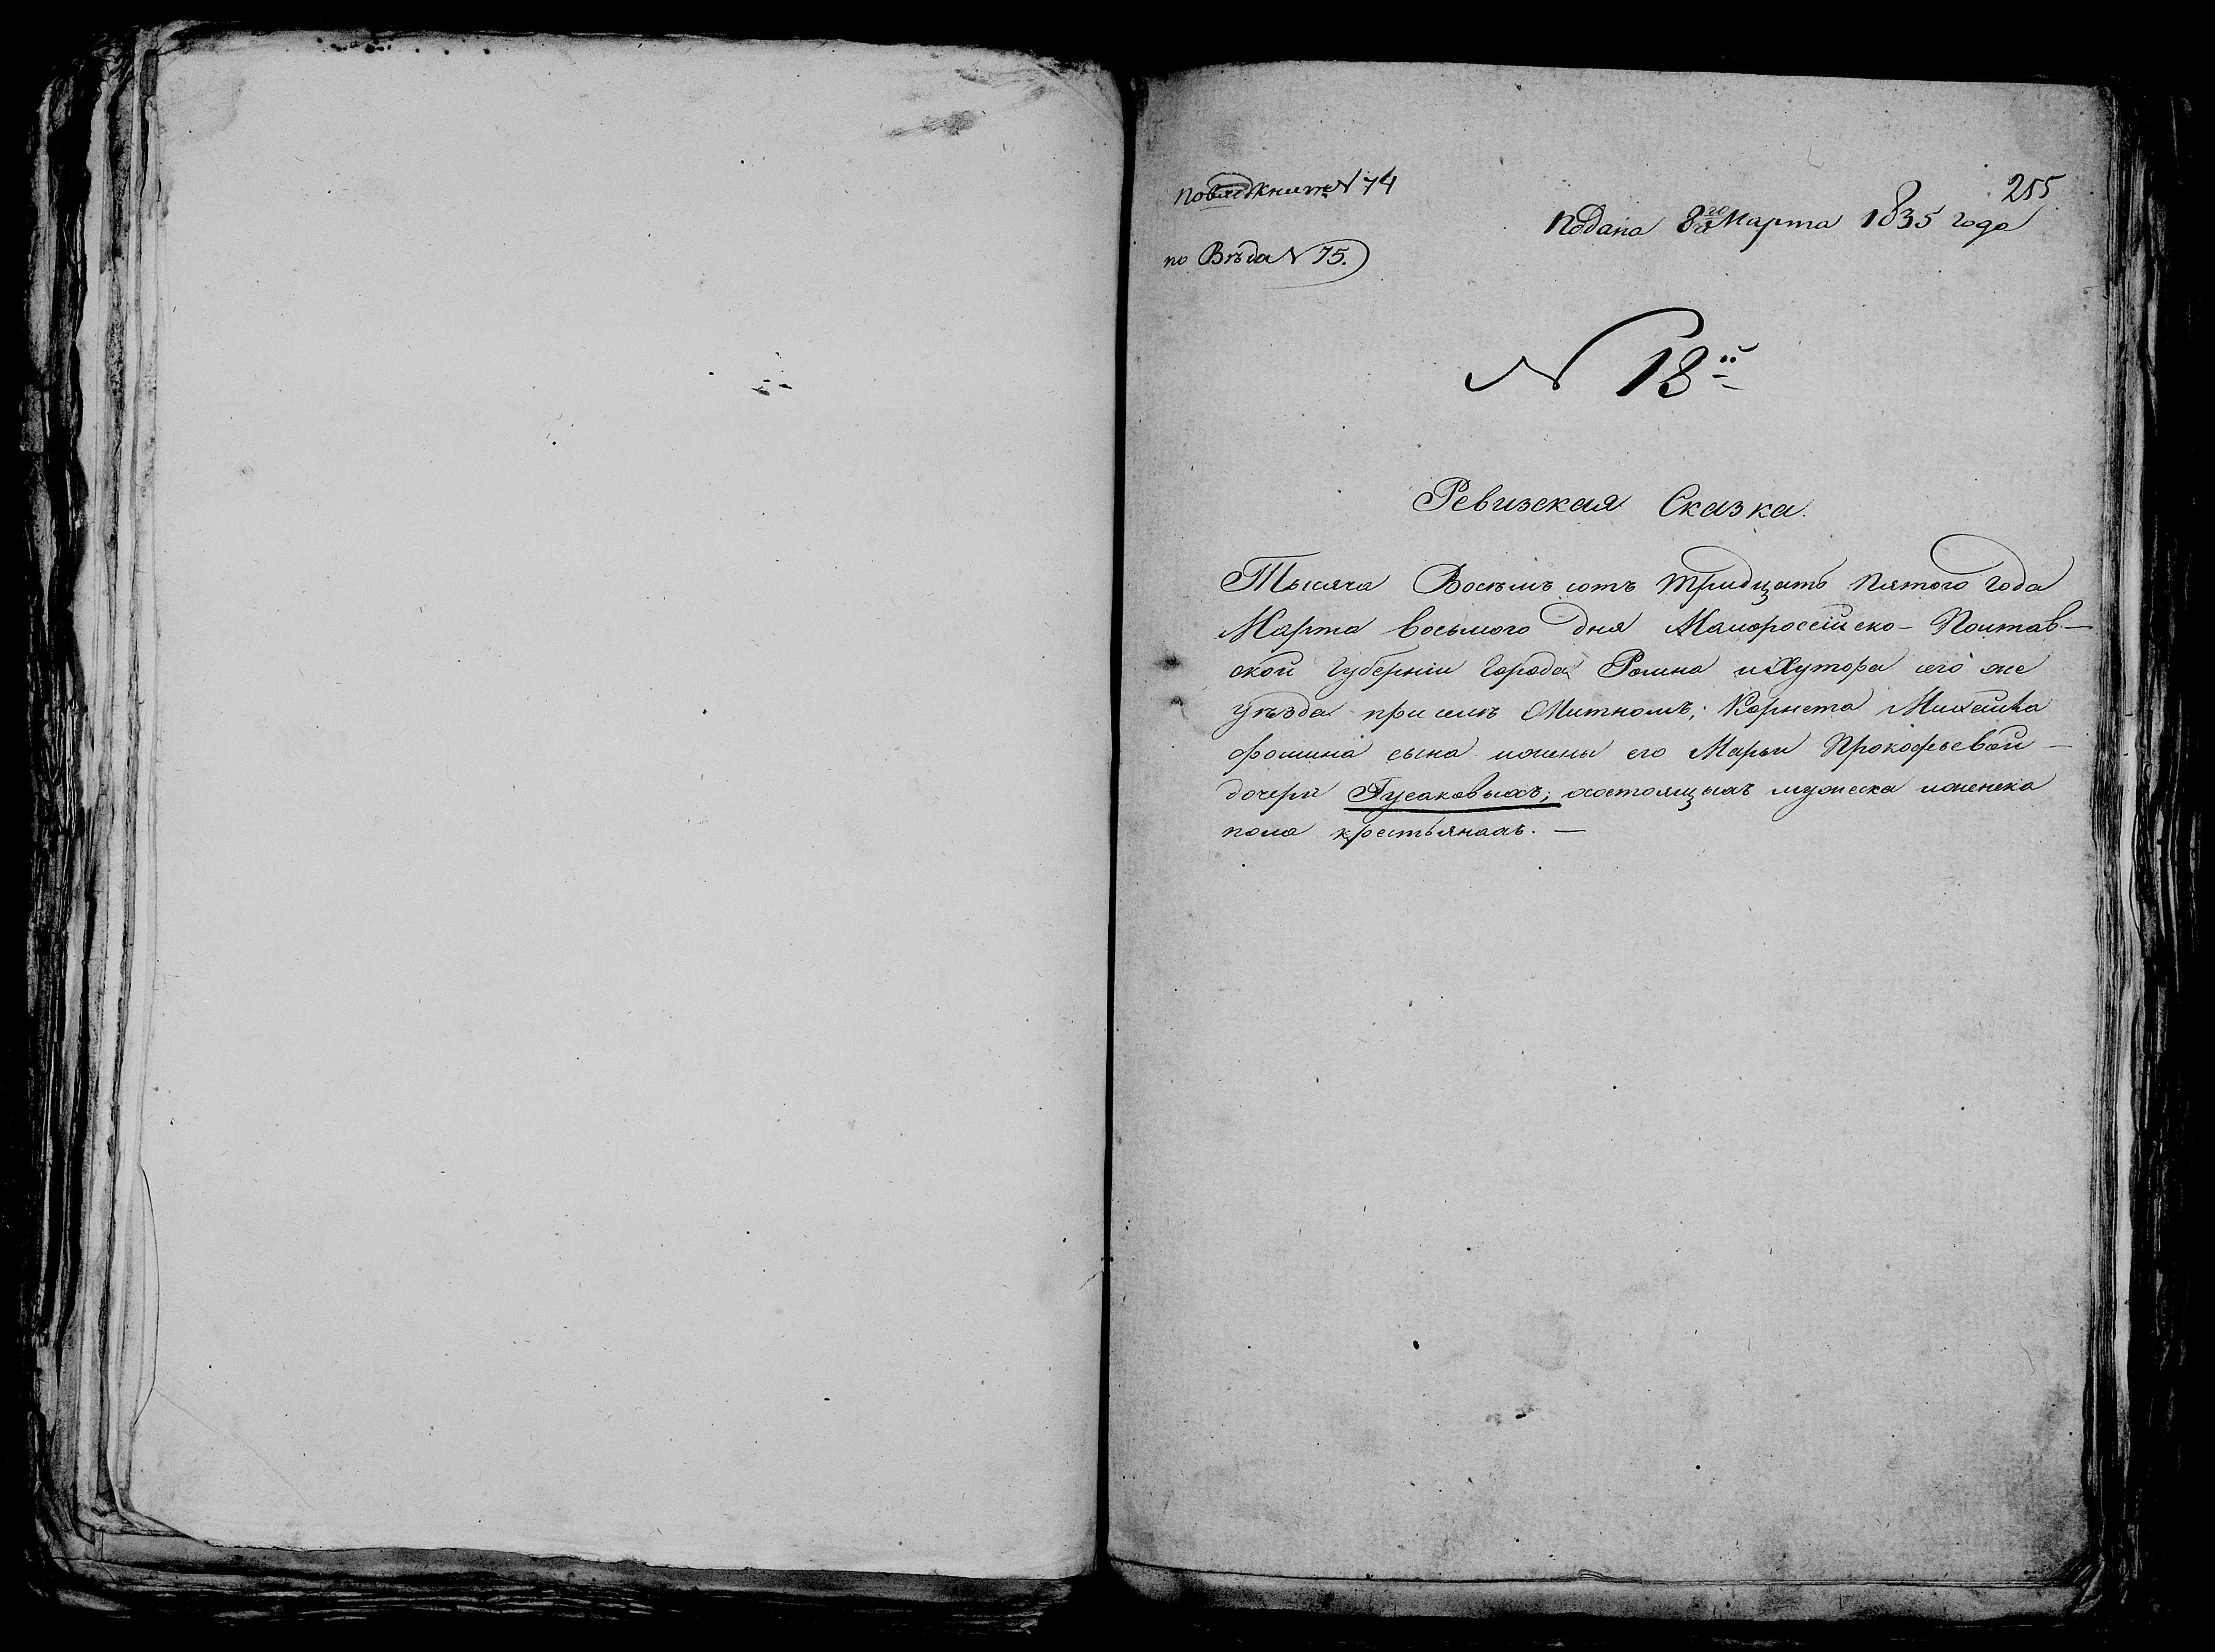 255
Подана 8го Марта 1835 года
книге N 74
по Вѣдо N 75.
N 18й
Ревизская Сказка.
Тысяча Восемъ сотъ тридцать пятого года
Марта восьмого дня Малороссійско- Полтав-
ской губерніи города Ромна и Хутора его же
уѣзда при селѣ; Корнета Михайла
Фомина сына и жены его Марьи Прокофьевой
дочери Гусаковыхъ; состоящихъ мужеска и женска
пола крестьянахъ. —